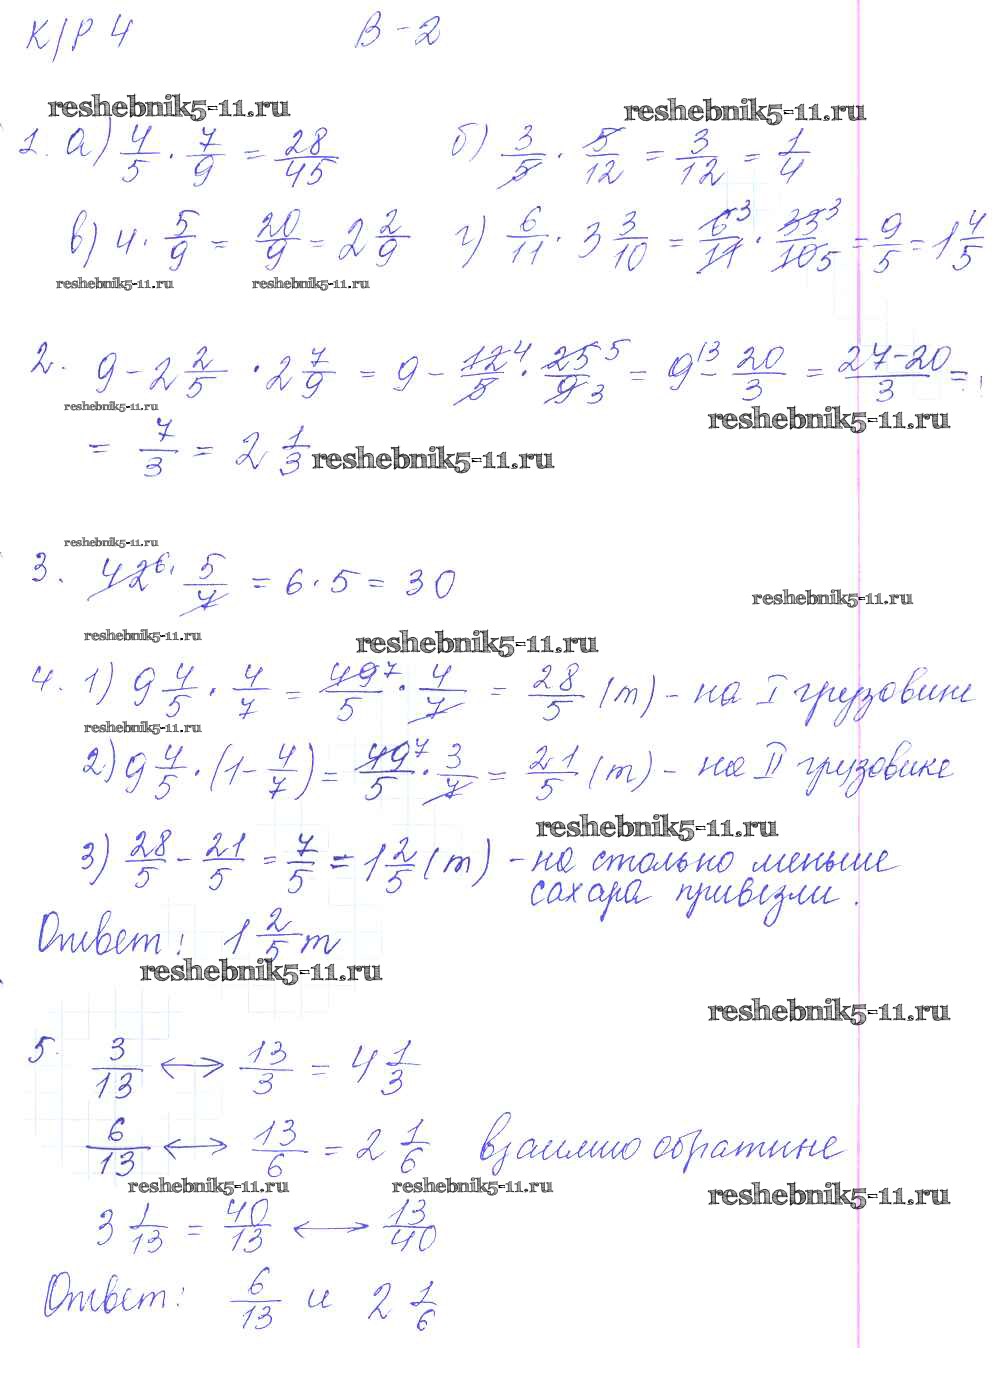 К/Р 4 В-2
reshebnik5-11.ru reshebnik5-11.ru
1. а) 4/5 · 7/9 = 28/45 б) 3/5 · 5/12 = 3/12 = 1/4
в) 4 · 5/9 = 20/9 = 2 2/9 г) 6/11 · 3 3/10 = 6³/11 · 33³/10 5 = 9/5 = 1 4/5
reshebnik5-11.ru reshebnik5-11.ru
2. 9 - 2 2/5 · 2 7/9 = 9 - 12⁴/5 · 25⁵/9 3 = 9^13 - 20/3 = 27-20/3 =
reshebnik5-11.ru reshebnik5-11.ru
= 7/3 = 2 1/3 reshebnik5-11.ru
reshebnik5-11.ru
3. 42⁶ · 5/7 = 6 · 5 = 30
reshebnik5-11.ru
reshebnik5-11.ru reshebnik5-11.ru
4. 1) 9 4/5 · 4/7 = 49⁷/5 · 4/7 = 28/5 (т) - на I грузовике
reshebnik5-11.ru
2) 9 4/5 · (1 - 4/7) = 49⁷/5 · 3/7 = 21/5 (т) - на II грузовике
reshebnik5-11.ru
3) 28/5 - 21/5 = 7/5 = 1 2/5 (т) - на столько меньше
сахара привезли.
Ответ: 1 2/5 т
reshebnik5-11.ru
reshebnik5-11.ru
5. 3/13 ↔ 13/3 = 4 1/3
6/13 ↔ 13/6 = 2 1/6 взаимно обратные
reshebnik5-11.ru reshebnik5-11.ru reshebnik5-11.ru
3 1/13 = 40/13 ↔ 13/40
Ответ: 6/13 и 2 1/6